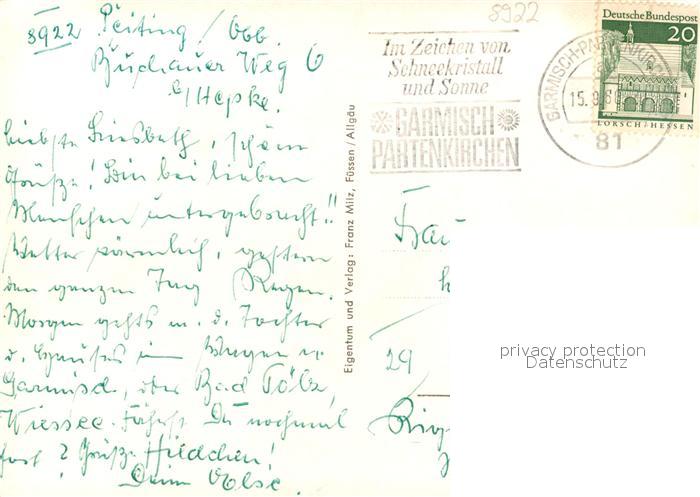 8922 Peiting / Obb.
Buchauer Weg 6
b/ Hepke.
Liebste Liesbeth, schöne
Grüße! Bin bei lieben
Menschen untergebracht!!
Wetter, gestern
den ganzen Tag Regen.
Morgen gehts m. d. Tochter
u. im Wagen n.
Garmisch, oder Bad Tölz,
Wiessee. Fährst Du nochmal
fort? Grüße Hildchen!
Deine Else.
8922
Im Zeichen von
Schneekristall
und Sonne
GARMISCH
PARTENKIRCHEN
GARMISCH-PARTENKIR
15.9.6
81
Deutsche Bundespost
20
LORSCH/HESSEN
Eigentum und Verlag: Franz Milz, Füssen / Allgäu
Frau
29
privacy protection
Datenschutz